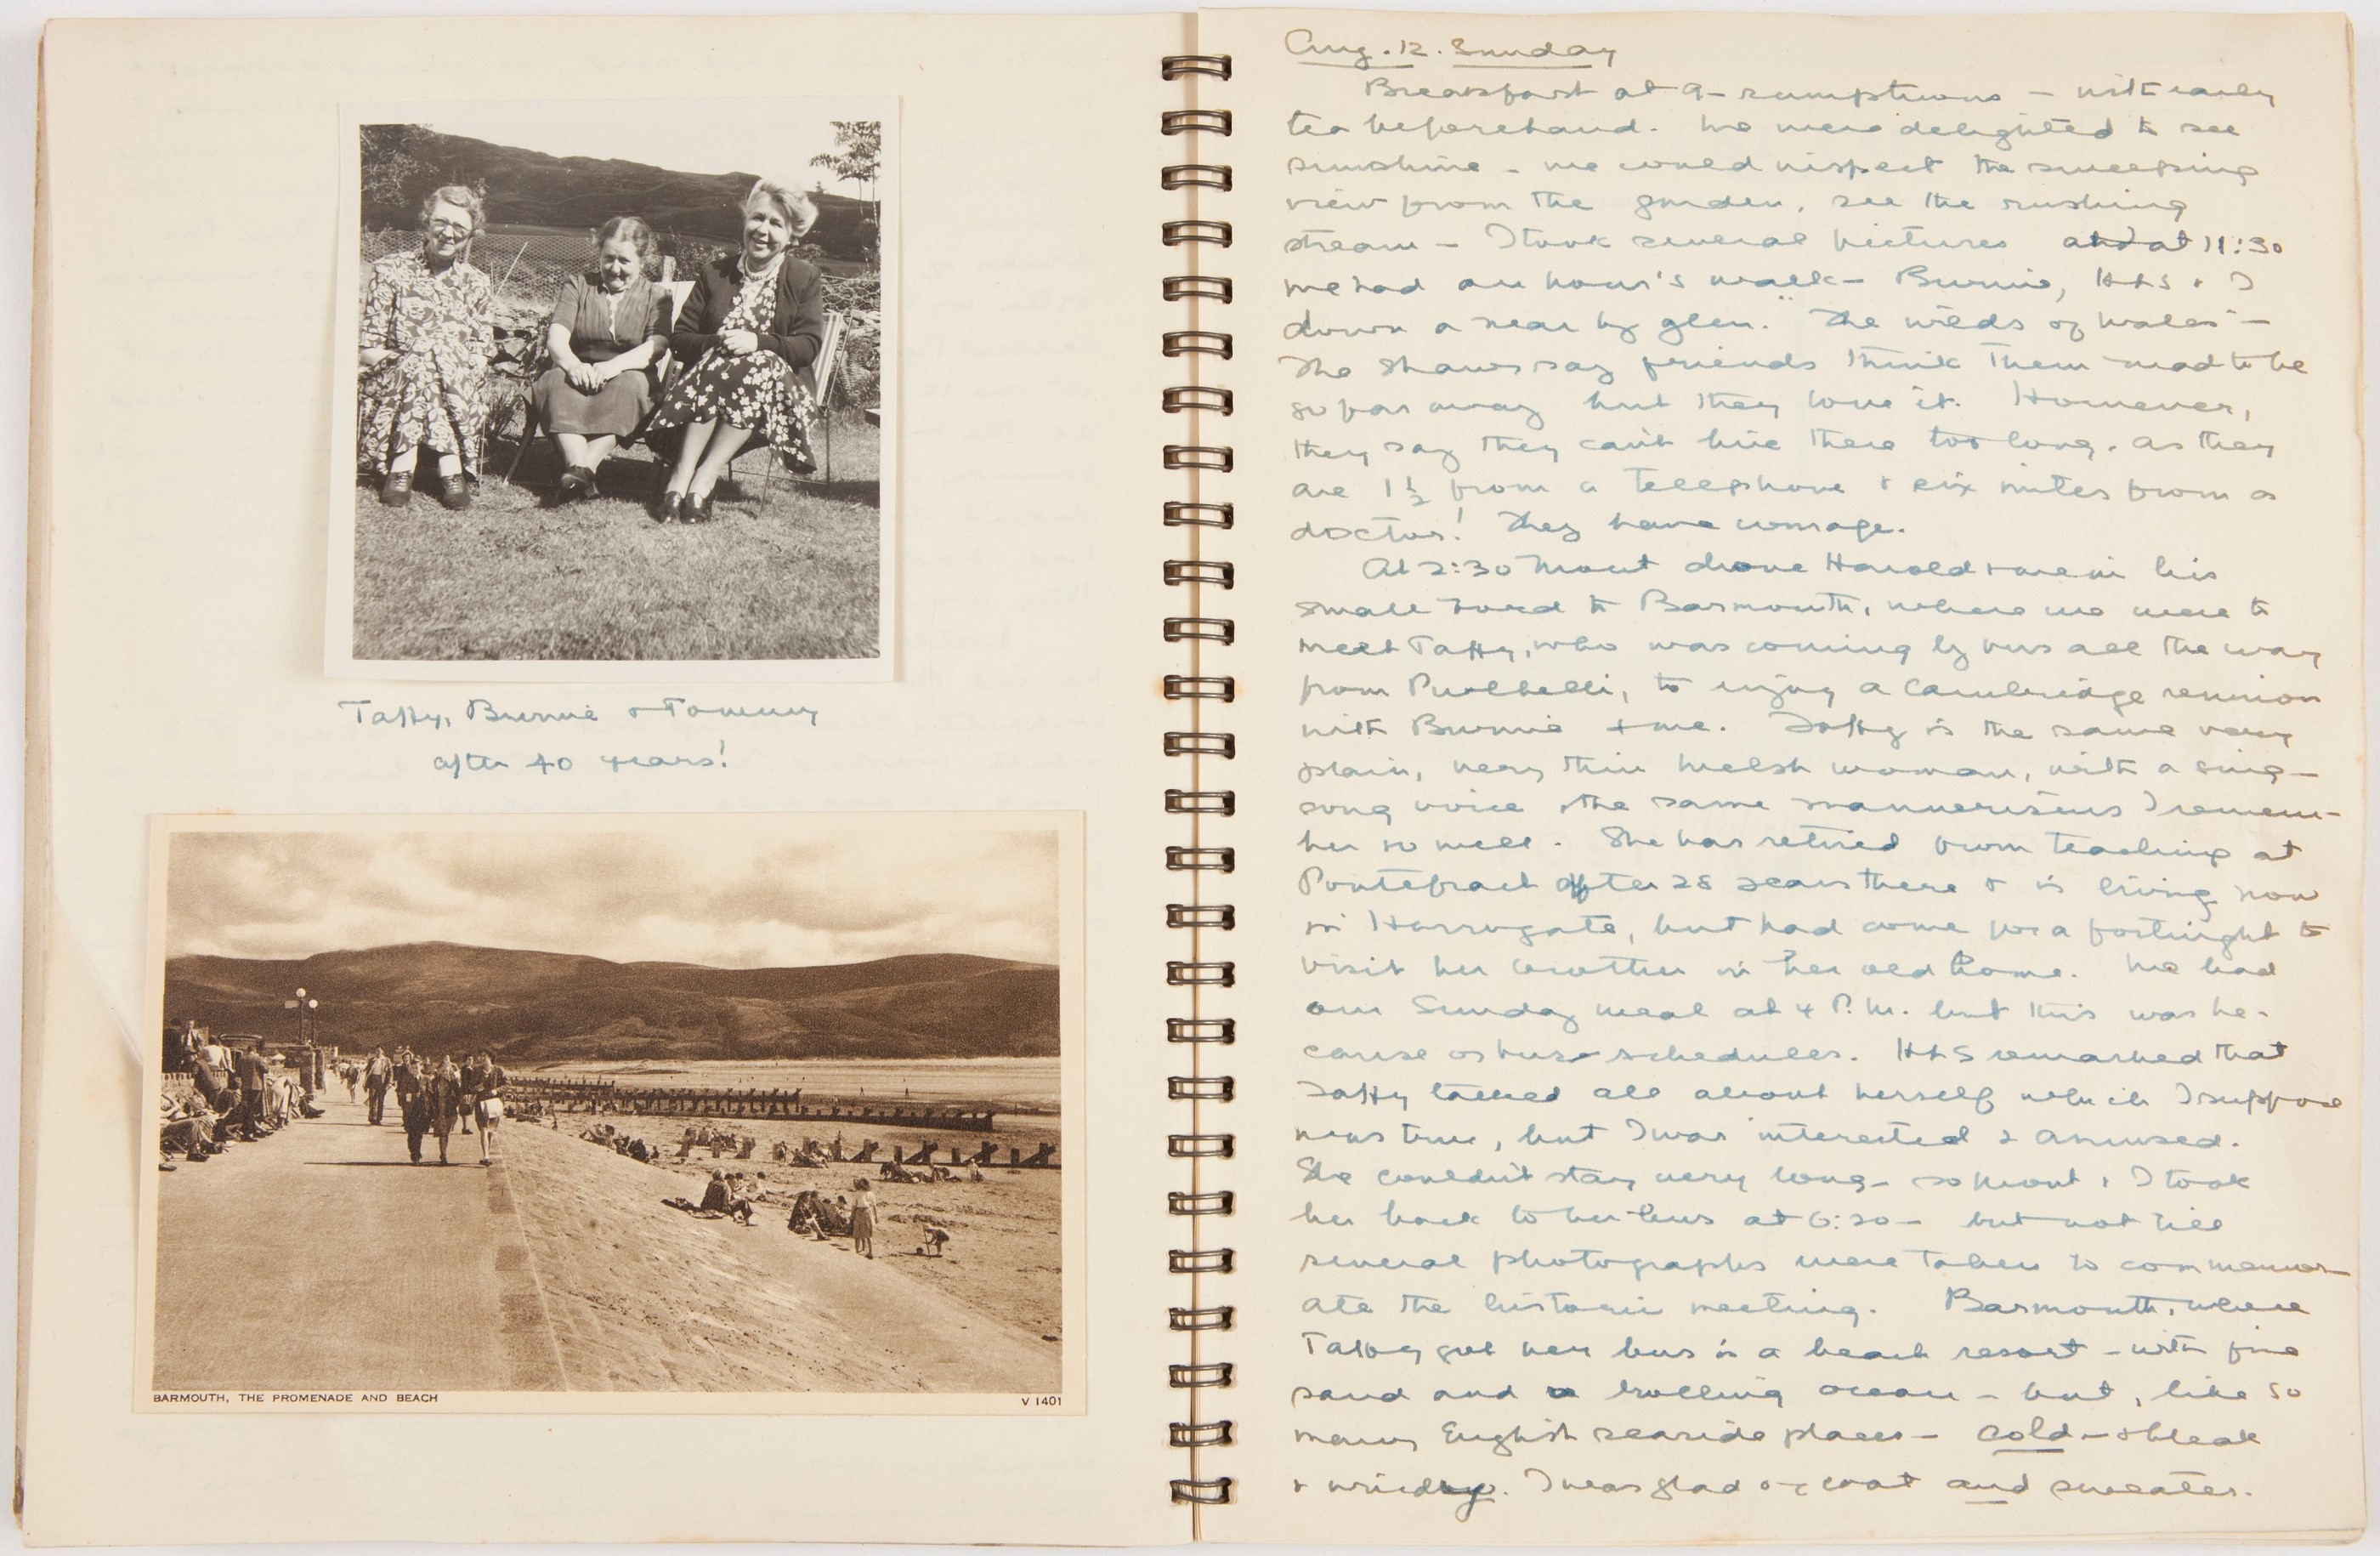 Taffy, Bunnie & Tommy
after 40 years!
BARMOUTH, THE PROMENADE AND BEACH
V 1401
Aug. 12. Sunday
Breakfast at 9 - sumptuous - with early
tea beforehand. We were delighted to see
sunshine - we could inspect the sweeping
view from the garden, see the rushing
stream - I took several pictures and at 11:30
we had an hour's walk - Bunnie, HLS & I
down a near by glen. "The wilds of Wales" -
The Shaws say friends think them mad to be
so far away but they love it. However,
they say they can't live there too long. as they
are 1½ from a telephone & six miles from a
doctor! They have courage.
At 2:30 Mont drove Harold & me in his
small Ford to Barmouth, where we were to
meet Taffy, who was coming by bus all the way
from Pwllhelli, to enjoy a Cambridge reunion
with Bunnie & me. Taffy is the same very
plain, very thin Welsh woman, with a sing-
song voice & the same mannerisms I remem-
ber so well. She has retired from teaching at
Pontefract after 28 years there & is living now
in Harrogate, but had come for a fortnight to
visit her brother in her old home. We had
our Sunday meal at 4 P.M. but this was be-
cause of bus schedules. HLS remarked that
Taffy talked all about herself which I suppose
was true, but I was interested & amused.
She couldn't stay very long - so Mont & I took
her back to her bus at 6:20 - but not till
several photographs were taken to commemor-
ate the historic meeting. Barmouth, where
Taffy got her bus is a beach resort - with fine
sand and a rolling ocean - but, like so
many English seaside places - cold - & bleak
& windy. I was glad of coat and sweater.